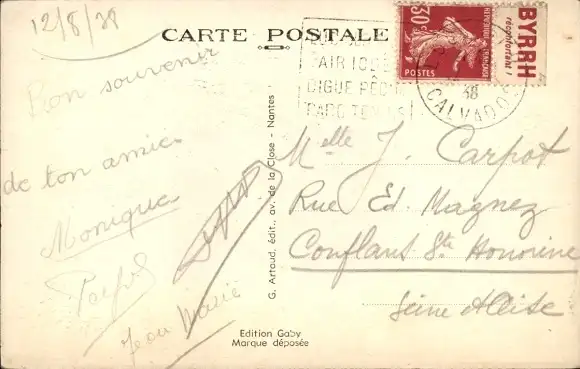 12/8/38
CARTE POSTALE
Bon souvenir
de ton amie
Monique
Jean Marie
G. Artaud, édit., av. de la Close - Nantes
Edition Gaby
Marque déposée
AIR IODÉ
DIGUE
PARC TENNIS
30c
POSTES
BYRRH
réconfortant !
38
CALVADOS
Melle J. Carpot
Rue Ed. Magnez
Conflans Ste Honorine
Seine et Oise